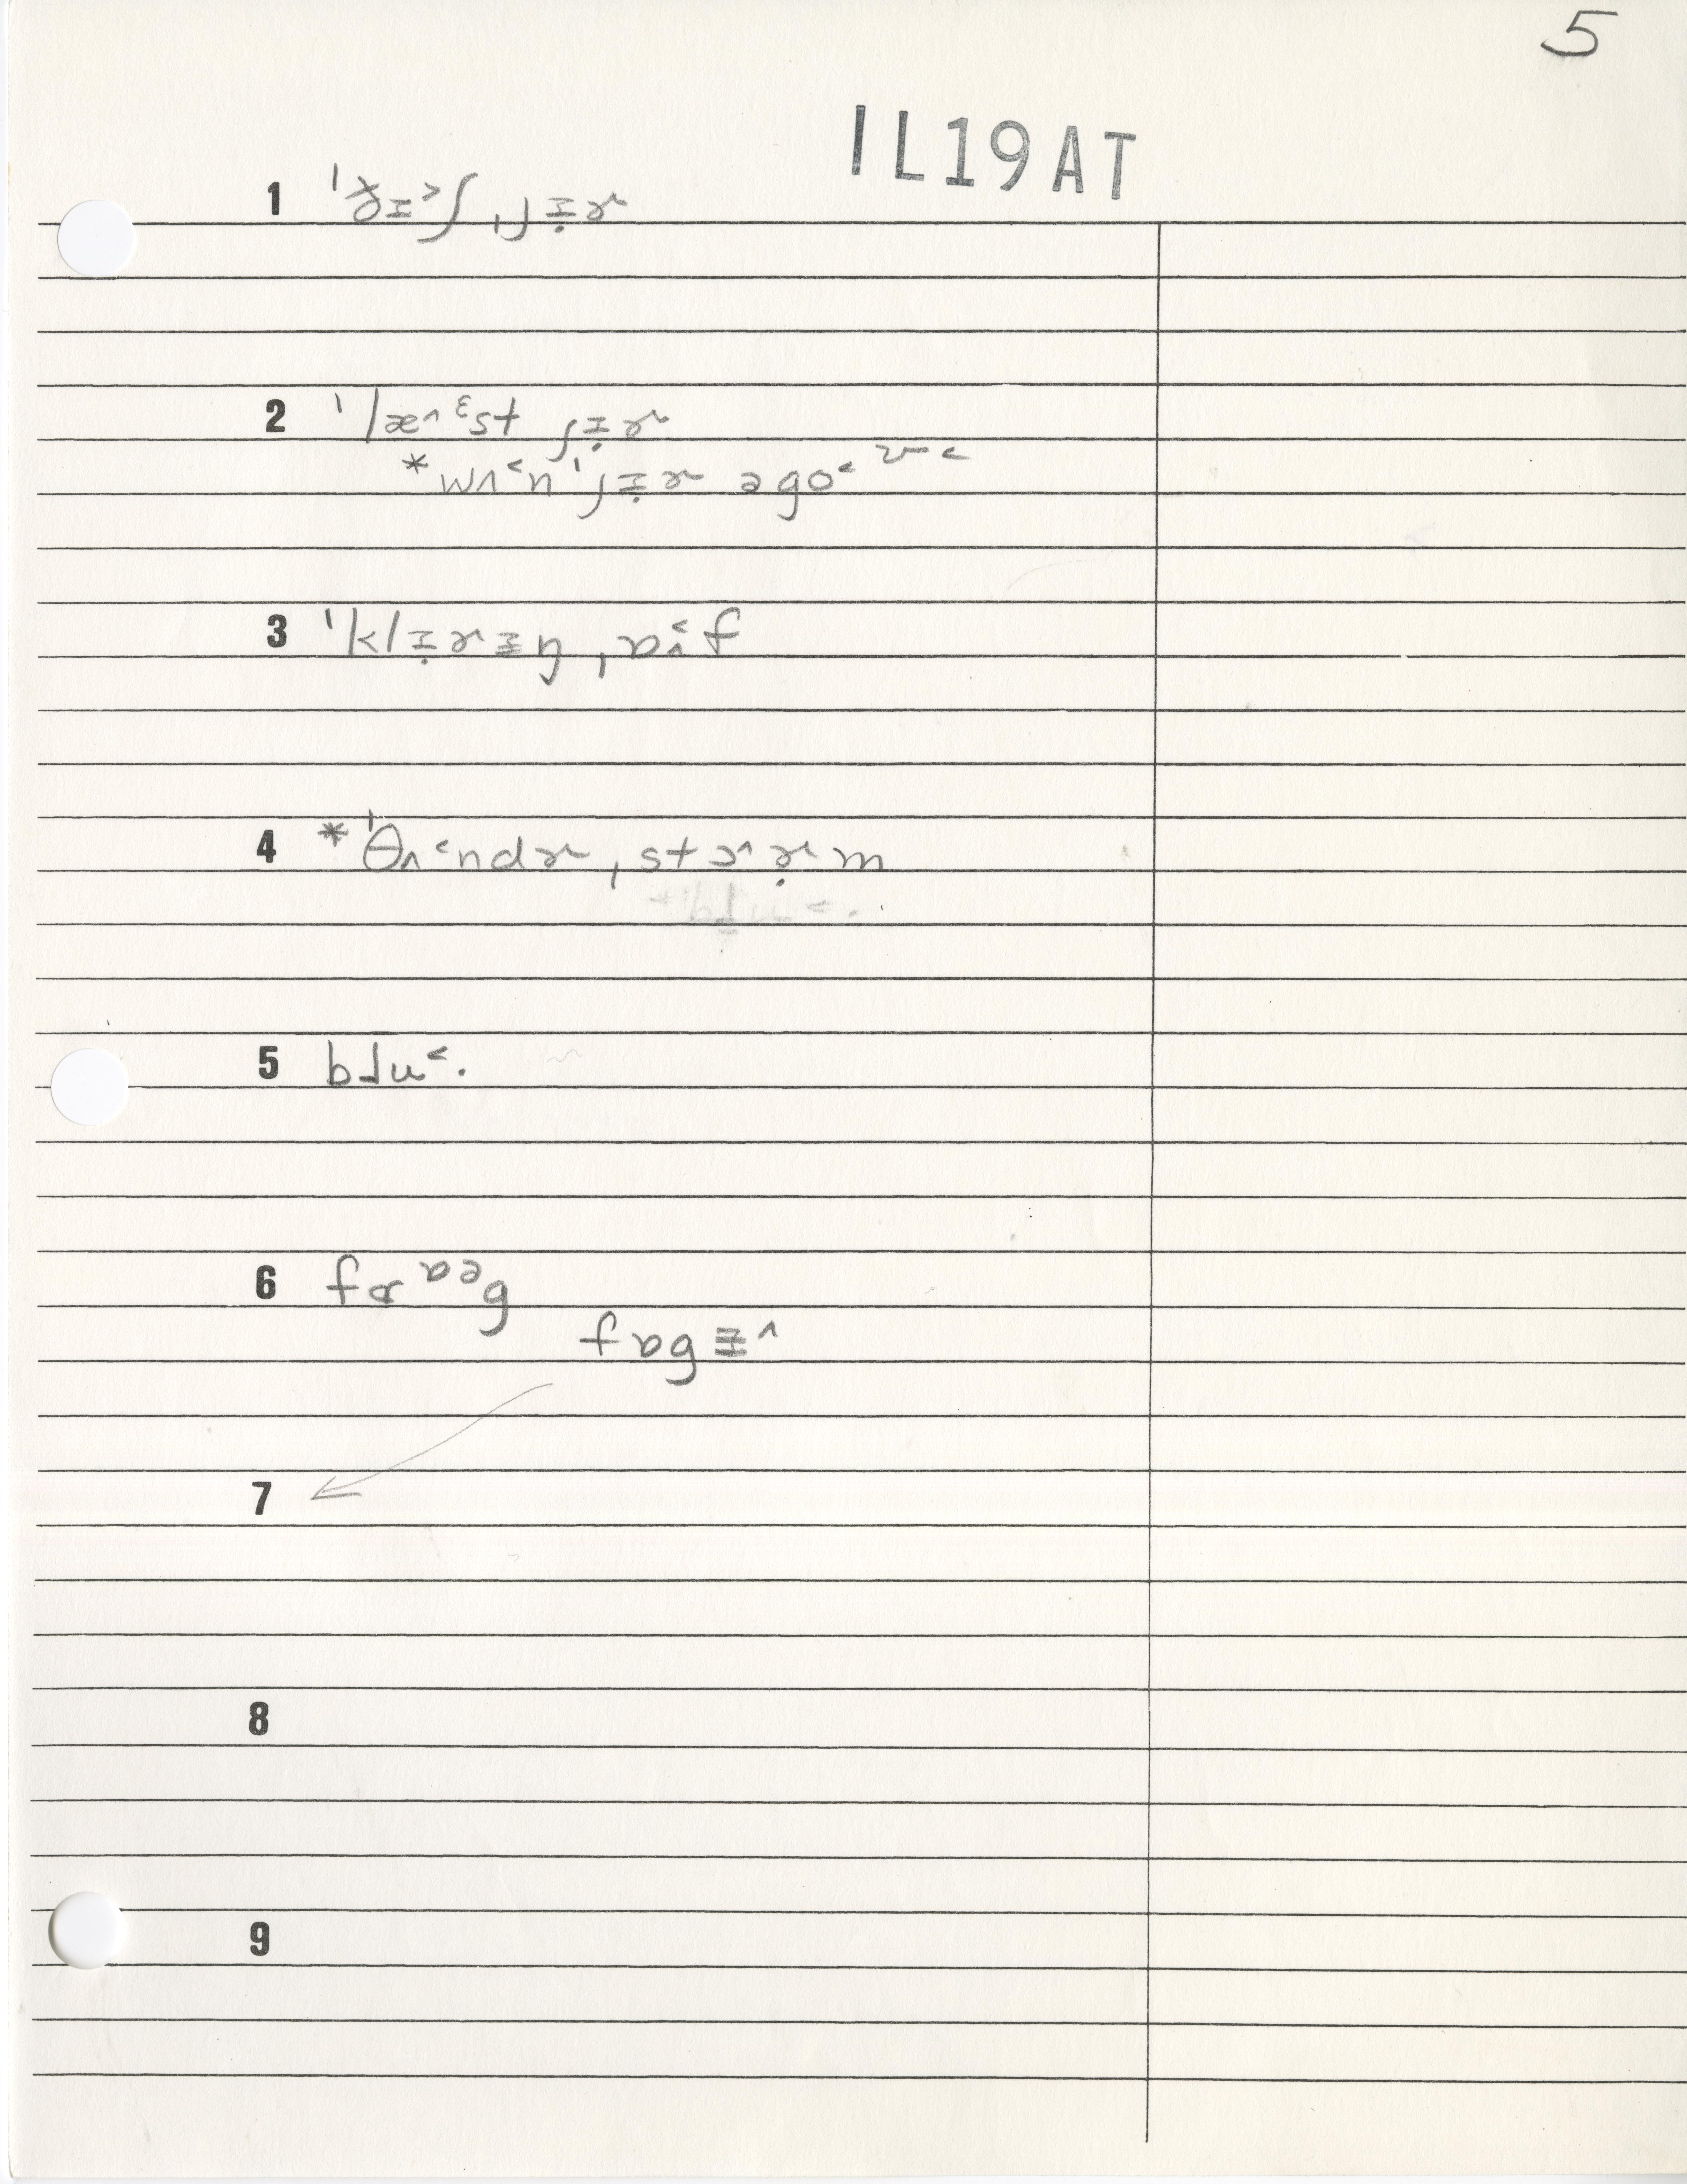 5
IL19AT
1 ˈðɪ˃ʃ ˌjɪ̣ɚ
2 ˈlæ˄ᵋst ʃɪ̣ɚ
*wʌ˂n ˈjɪ̣ɚ əgo˂ ᶷ˂
3 ˈklɪ̣ɚɪŋ ˌɒ˃f
4 *ˈθʌ˂ndɚ ˌstɔ˄ɚ̣m
5 blu˂.
6 fɑɒəg
fɒgɪ˄
7
8
9